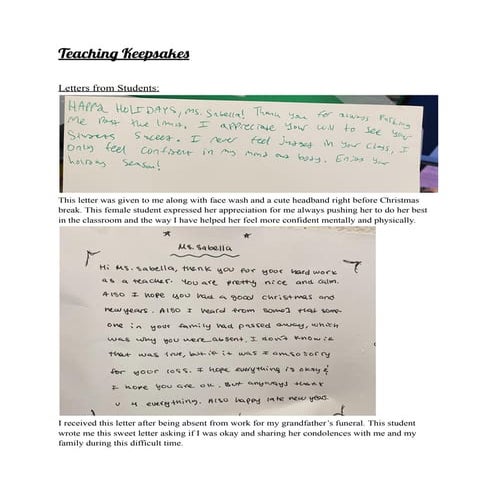 Teaching Keepsakes
Letters from Students:
HAPPY HOLIDAYS, Ms. Sabella! Thank you for always Pushing
Me Past the limit. I appreciate your will to see your
Students Succeed. I never feel judged in your class, I
only feel confident in my mind and body. Enjoy your
holiday Season!
This letter was given to me along with face wash and a cute headband right before Christmas
break. This female student expressed her appreciation for me always pushing her to do her best
in the classroom and the way I have helped her feel more confident mentally and physically.
Ms. Sabella
Hi Ms. Sabella, thank you for your hard work
as a teacher. You are pretty nice and calm.
Also I hope you had a good christmas and
new years. Also I heard from some1 that some-
one in your family had passed away, which
was why you were absent. I don't know if
that was true, but if it was I am so sorry
for your loss. I hope everything is okay &
I hope you are ok. But anyways thank
u 4 everything. Also happy late new years.
I received this letter after being absent from work for my grandfather's funeral. This student
wrote me this sweet letter asking if I was okay and sharing her condolences with me and my
family during this difficult time.